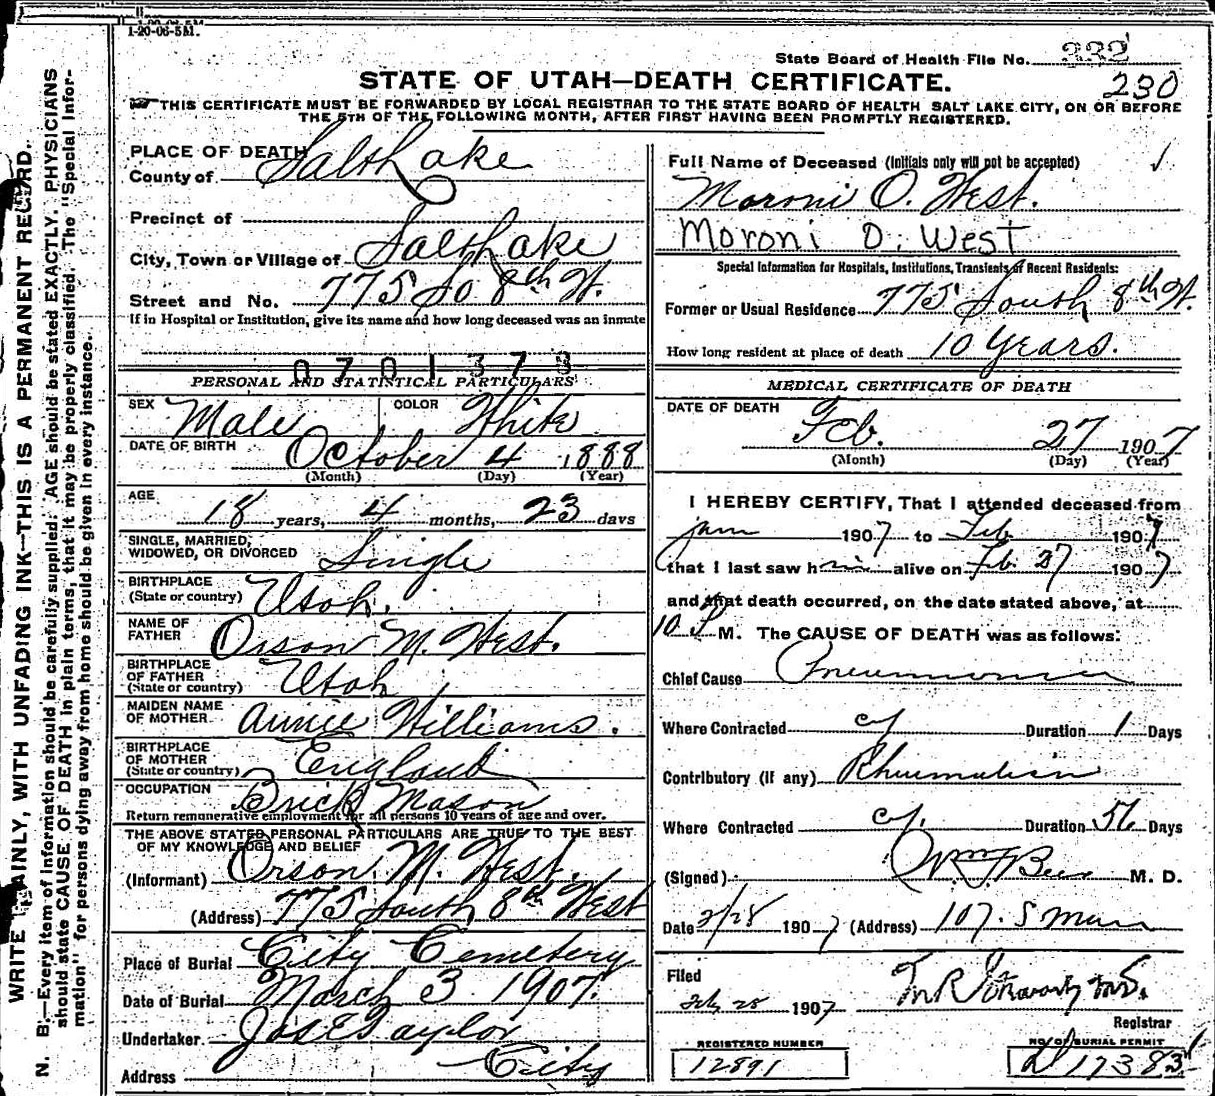 1-20-06-5M.
State Board of Health File No. 332
230
STATE OF UTAH—DEATH CERTIFICATE.
THIS CERTIFICATE MUST BE FORWARDED BY LOCAL REGISTRAR TO THE STATE BOARD OF HEALTH SALT LAKE CITY, ON OR BEFORE
THE 5TH OF THE FOLLOWING MONTH, AFTER FIRST HAVING BEEN PROMPTLY REGISTERED.
WRITE PLAINLY, WITH UNFADING INK—THIS IS A PERMANENT RECORD.
N. B.—Every item of information should be carefully supplied. AGE should be stated EXACTLY. PHYSICIANS
should state CAUSE OF DEATH in plain terms, that it may be properly classified. The "Special Infor-
mation" for persons dying away from home should be given in every instance.
PLACE OF DEATH
County of Salt Lake
Precinct of
City, Town or Village of Salt Lake
Street and No. 775 So 8th W.
If in Hospital or Institution, give its name and how long deceased was an inmate
0701373
PERSONAL AND STATISTICAL PARTICULARS
SEX Male COLOR White
DATE OF BIRTH October 4 1888
(Month) (Day) (Year)
AGE
18 years, 4 months, 23 days
SINGLE, MARRIED,
WIDOWED, OR DIVORCED Single
BIRTHPLACE
(State or country) Utah.
NAME OF
FATHER Orson M. West.
BIRTHPLACE
OF FATHER
(State or country) Utah
MAIDEN NAME
OF MOTHER Annie Williams.
BIRTHPLACE
OF MOTHER
(State or country) England
OCCUPATION Brick Mason
Return remunerative employment for all persons 10 years of age and over.
THE ABOVE STATED PERSONAL PARTICULARS ARE TRUE TO THE BEST
OF MY KNOWLEDGE AND BELIEF
(Informant) Orson M. West.
(Address) 775 South 8th West
Place of Burial City Cemetery
Date of Burial March 3 1907.
Undertaker Jos E Taylor
Address City
Full Name of Deceased (Initials only will not be accepted)
Moroni O. West.
Moroni O. West
Special Information for Hospitals, Institutions, Transients or Recent Residents:
Former or Usual Residence 775 South 8th W.
How long resident at place of death 10 Years.
MEDICAL CERTIFICATE OF DEATH
DATE OF DEATH
Feb. 27 1907
(Month) (Day) (Year)
I HEREBY CERTIFY, That I attended deceased from
Jan 1907 to Feb 1907
that I last saw him alive on Feb. 27 1907
and that death occurred, on the date stated above, at
10 P M. The CAUSE OF DEATH was as follows:
Chief Cause Pneumonia
Where Contracted cy Duration 1 Days
Contributory (if any) Rheumatism
Where Contracted cy. Duration 56 Days
(Signed) M. D.
Date 2/28 1907 (Address) 107. S Main
Filed
Feby 28 1907
Registrar
REGISTERED NUMBER
12891
NO. OF BURIAL PERMIT
17383